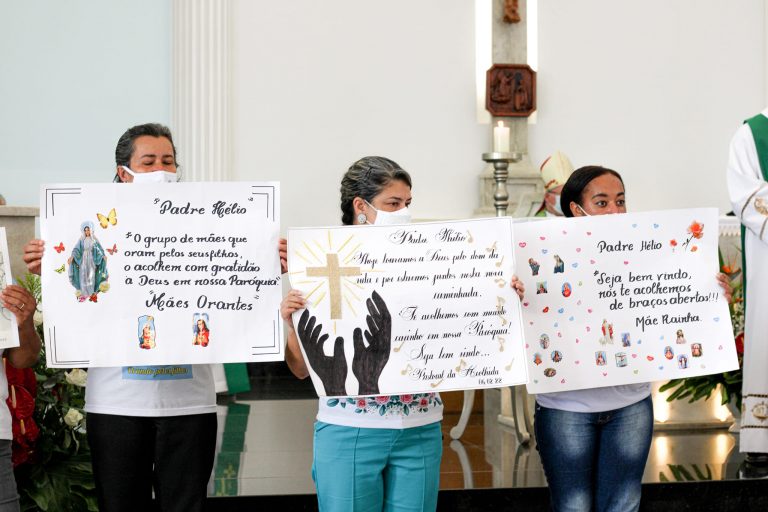 "Padre Hélio"
"O grupo de mães que
oram pelos seus filhos,
o acolhem com gratidão
à Deus em nossa Paróquia"
"Mães Orantes"
Padre Hélio
Hoje louvamos a Deus pelo dom da
vida e por estarmos juntos nesta nova
caminhada.
Te acolhemos com muito
carinho em nossa Paróquia!
Seja bem vindo...
Pastoral da Acolhida
Padre Hélio
"Seja bem vindo,
nós te acolhemos
de braços abertos!!!
Mãe Rainha.